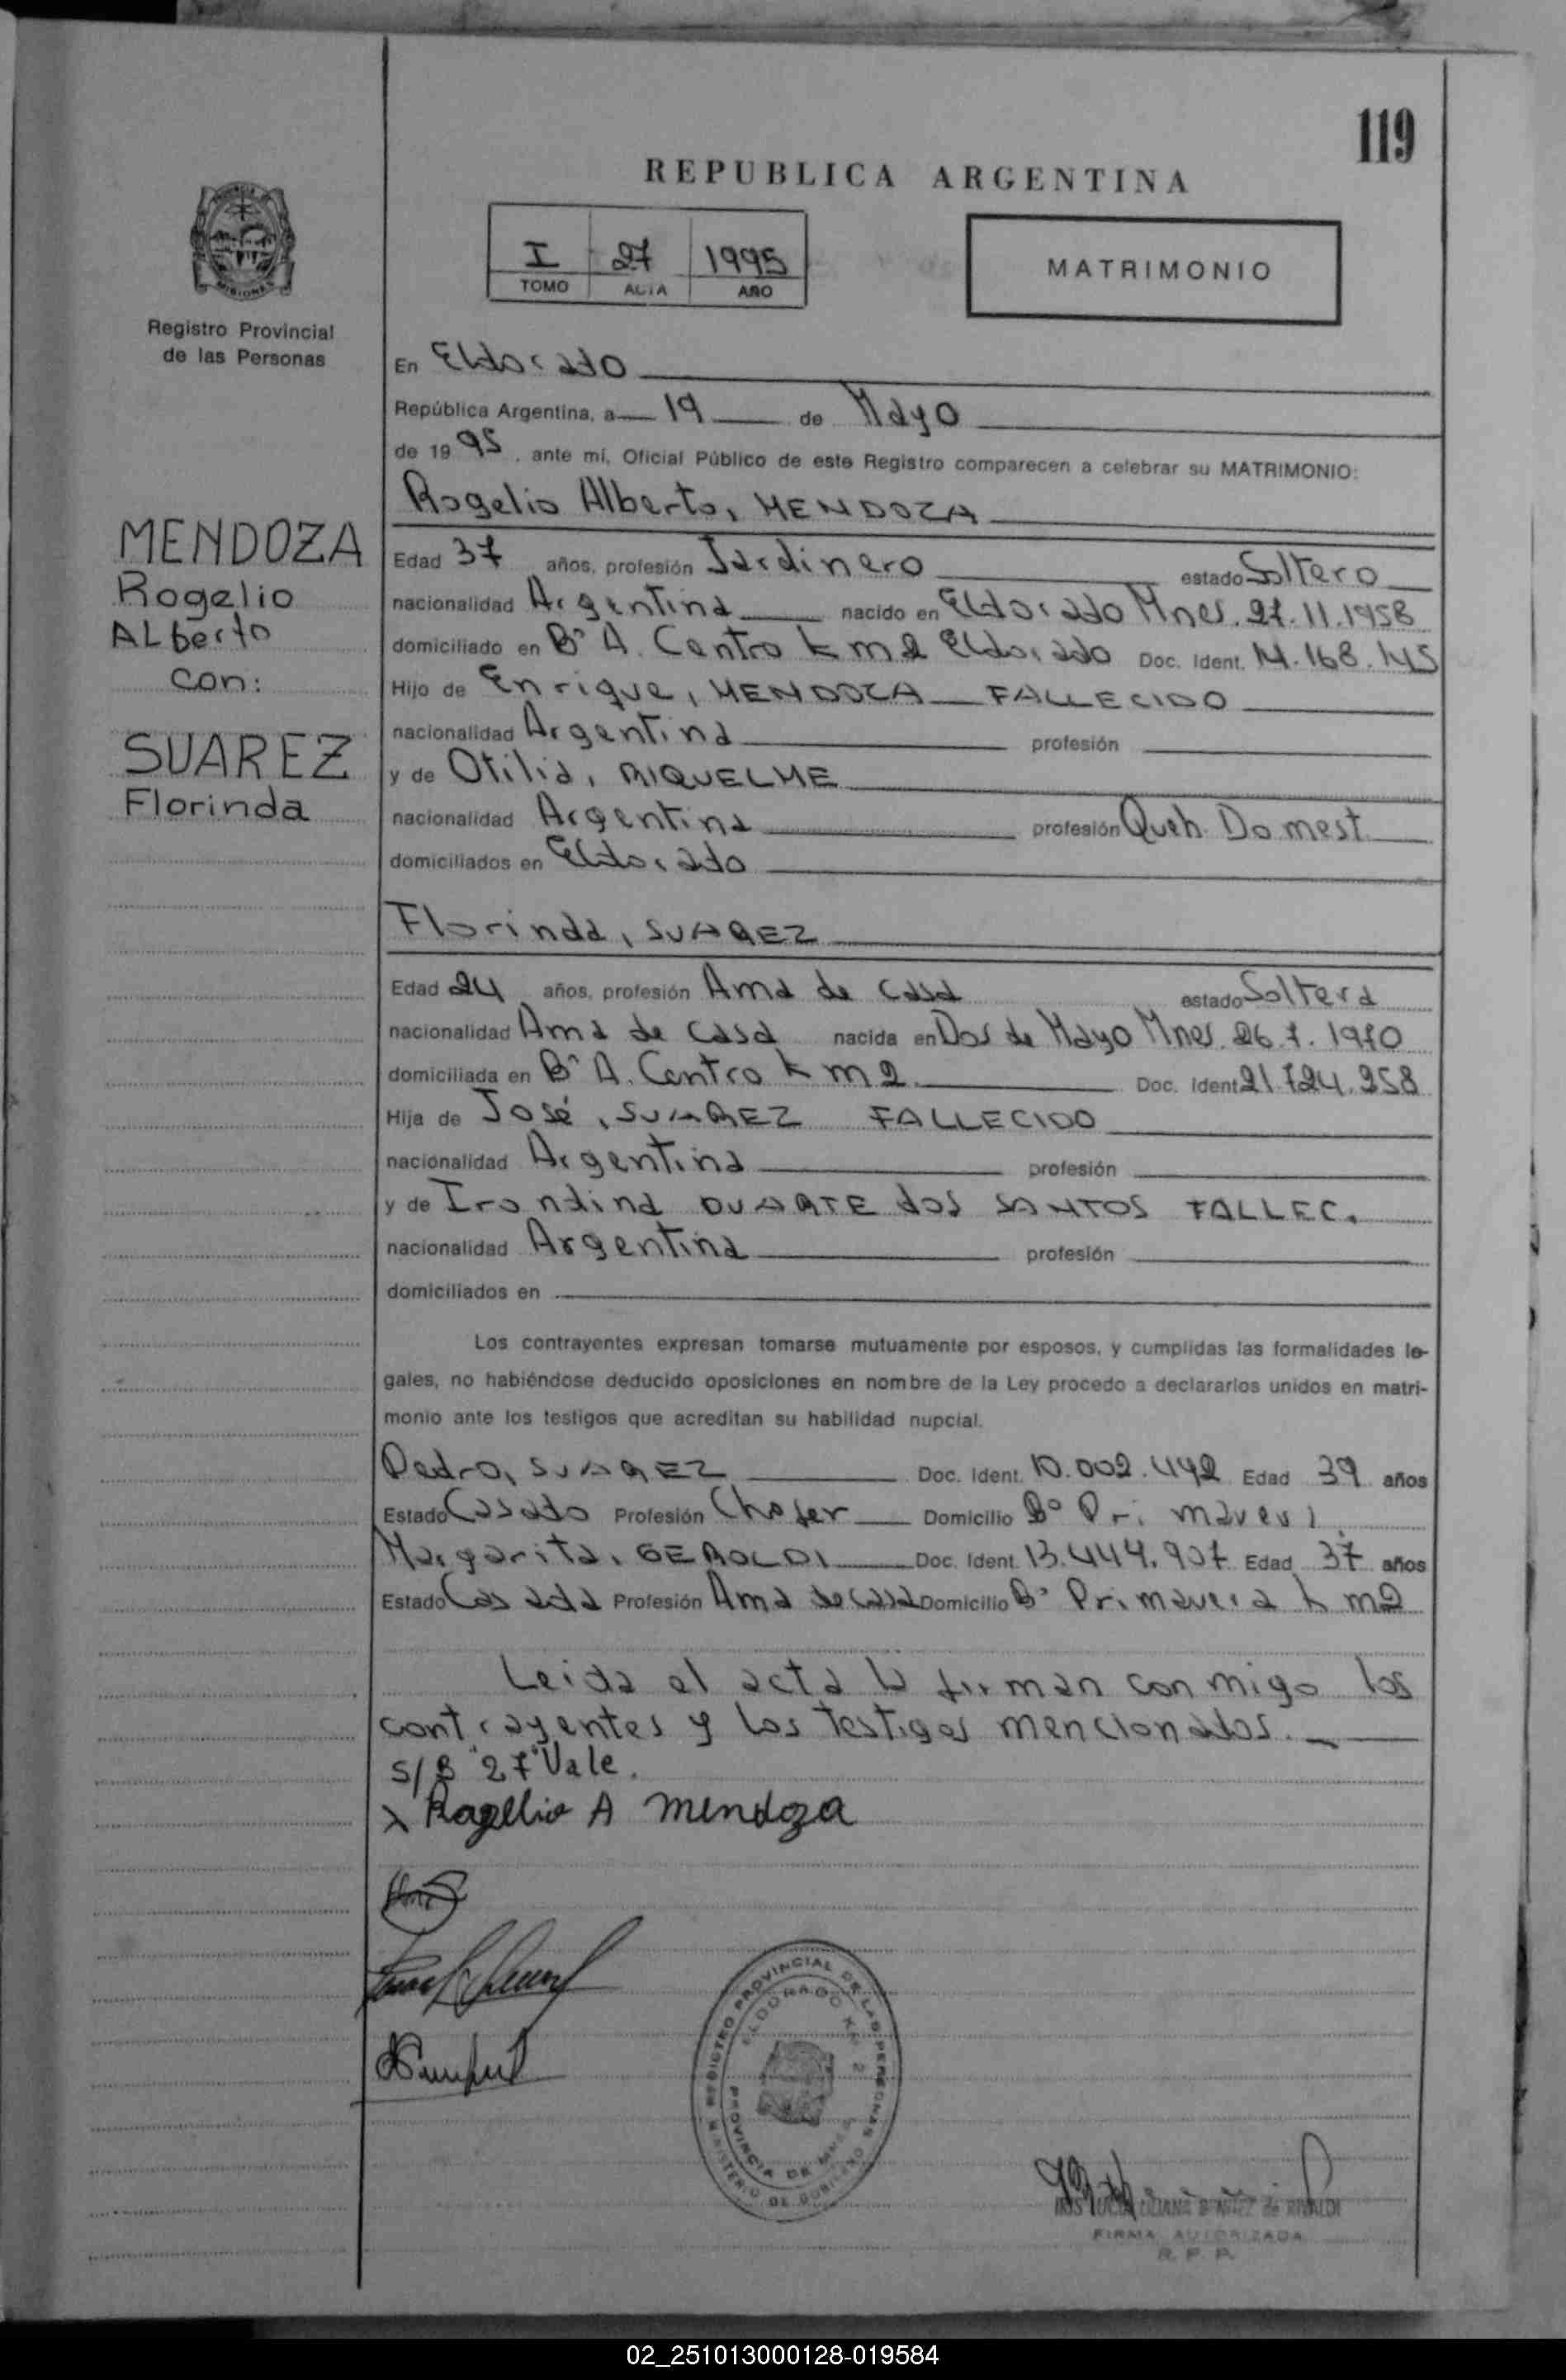 119
REPUBLICA ARGENTINA
I 27 1995
TOMO ACTA AÑO
MATRIMONIO
MISIONES
Registro Provincial
de las Personas
MENDOZA
Rogelio
ALberto
con:
SUAREZ
Florinda
En Eldorado
República Argentina, a 19 de Mayo
de 1995, ante mí, Oficial Público de este Registro comparecen a celebrar su MATRIMONIO:
Rogelio Alberto, MENDOZA
Edad 37 años, profesión Jardinero estado Soltero
nacionalidad Argentina nacido en Eldorado Mnes. 27.11.1958
domiciliado en B° A. Centro km 2 Eldorado Doc. Ident. 14.168.145
Hijo de Enrique, MENDOZA FALLECIDO
nacionalidad Argentina profesión
y de Otilia, RIQUELME
nacionalidad Argentina profesión Queh. Domest
domiciliados en Eldorado
Florinda, SUAREZ
Edad 24 años, profesión Ama de casa estado Soltera
nacionalidad Ama de casa nacida en Dos de Mayo Mnes. 26.7.1970
domiciliada en B° A. Centro km 2 Doc. Ident 21.724.258
Hija de José, SUAREZ FALLECIDO
nacionalidad Argentina profesión
y de Irondina DUARTE dos SANTOS FALLEC.
nacionalidad Argentina profesión
domiciliados en
Los contrayentes expresan tomarse mutuamente por esposos, y cumplidas las formalidades le-
gales, no habiéndose deducido oposiciones en nombre de la Ley procedo a declararlos unidos en matri-
monio ante los testigos que acreditan su habilidad nupcial.
Pedro, SUAREZ Doc. Ident. 10.002.442 Edad 39 años
Estado Casado Profesión Chofer Domicilio B° Primavera
Margarita, GEROLDI Doc. Ident. 13.444.907 Edad 37 años
Estado Casada Profesión Ama de casa Domicilio B° Primavera km 2
Leida el acta la firman conmigo los
contrayentes y los testigos mencionados.
S/B "27" Vale.
x Rogelio A Mendoza
REGISTRO PROVINCIAL DE LAS PERSONAS
ELDORADO KM 2
PROVINCIA DE MNES.
MINISTERIO DE GOBIERNO
LILIANA BENITEZ de RIVALDI
FIRMA AUTORIZADA
R. P. P.
02_251013000128-019584